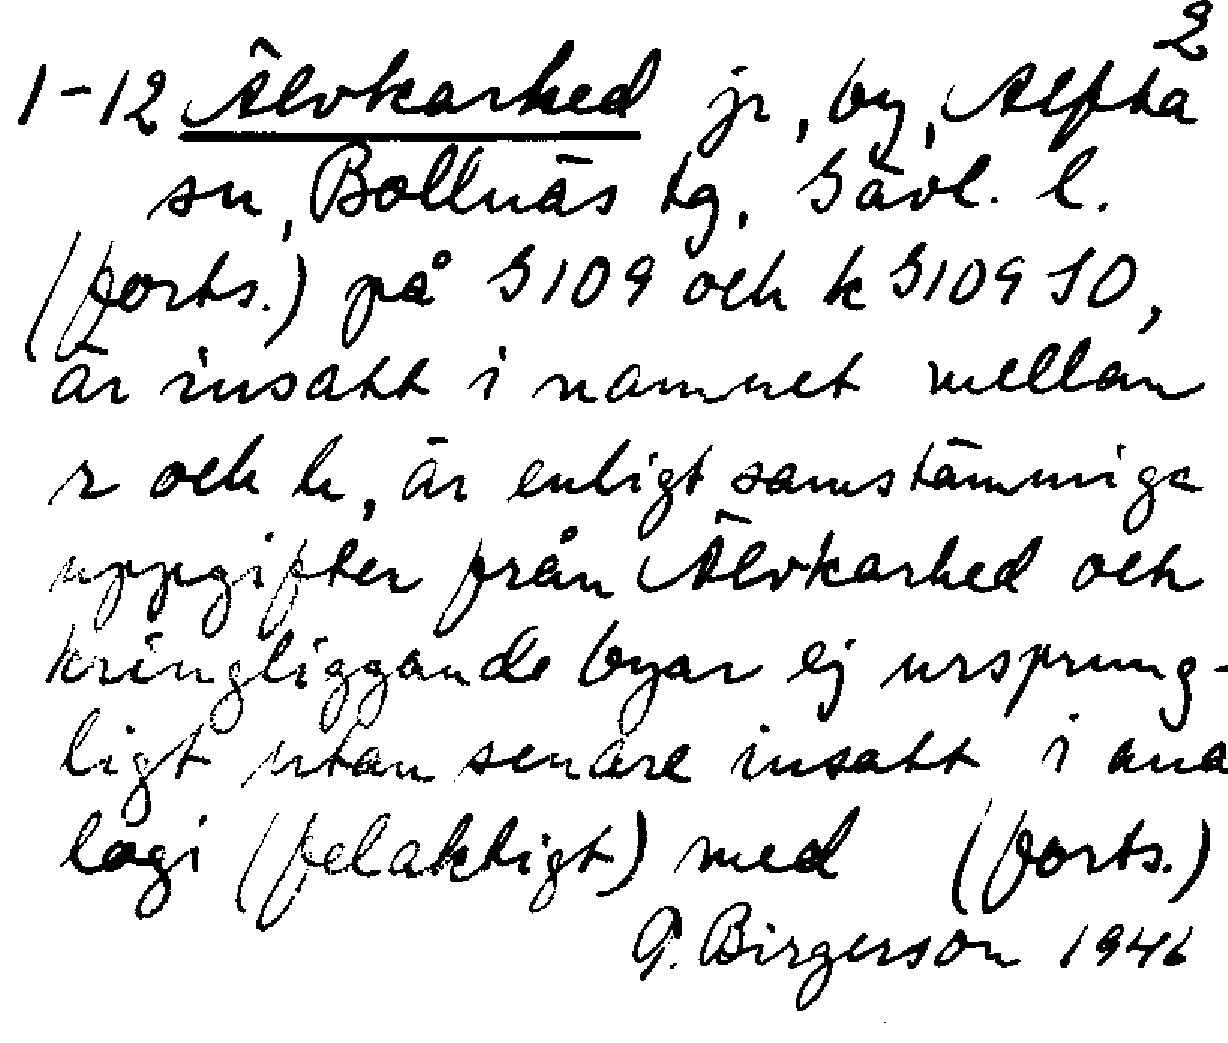 2
1-12 Älvkarhed jr, by, Alfta
sn, Bollnäs tg, Gävl. l.
(forts.) på G109 och k G109 SO,
är insatt i namnet mellan
r och h, är enligt samstämmiga
uppgifter från Älvkarhed och
kringliggande byar ej ursprung-
ligt utan senare insatt i ana
logi (felaktigt) med (forts.)
G. Birgerson 1946